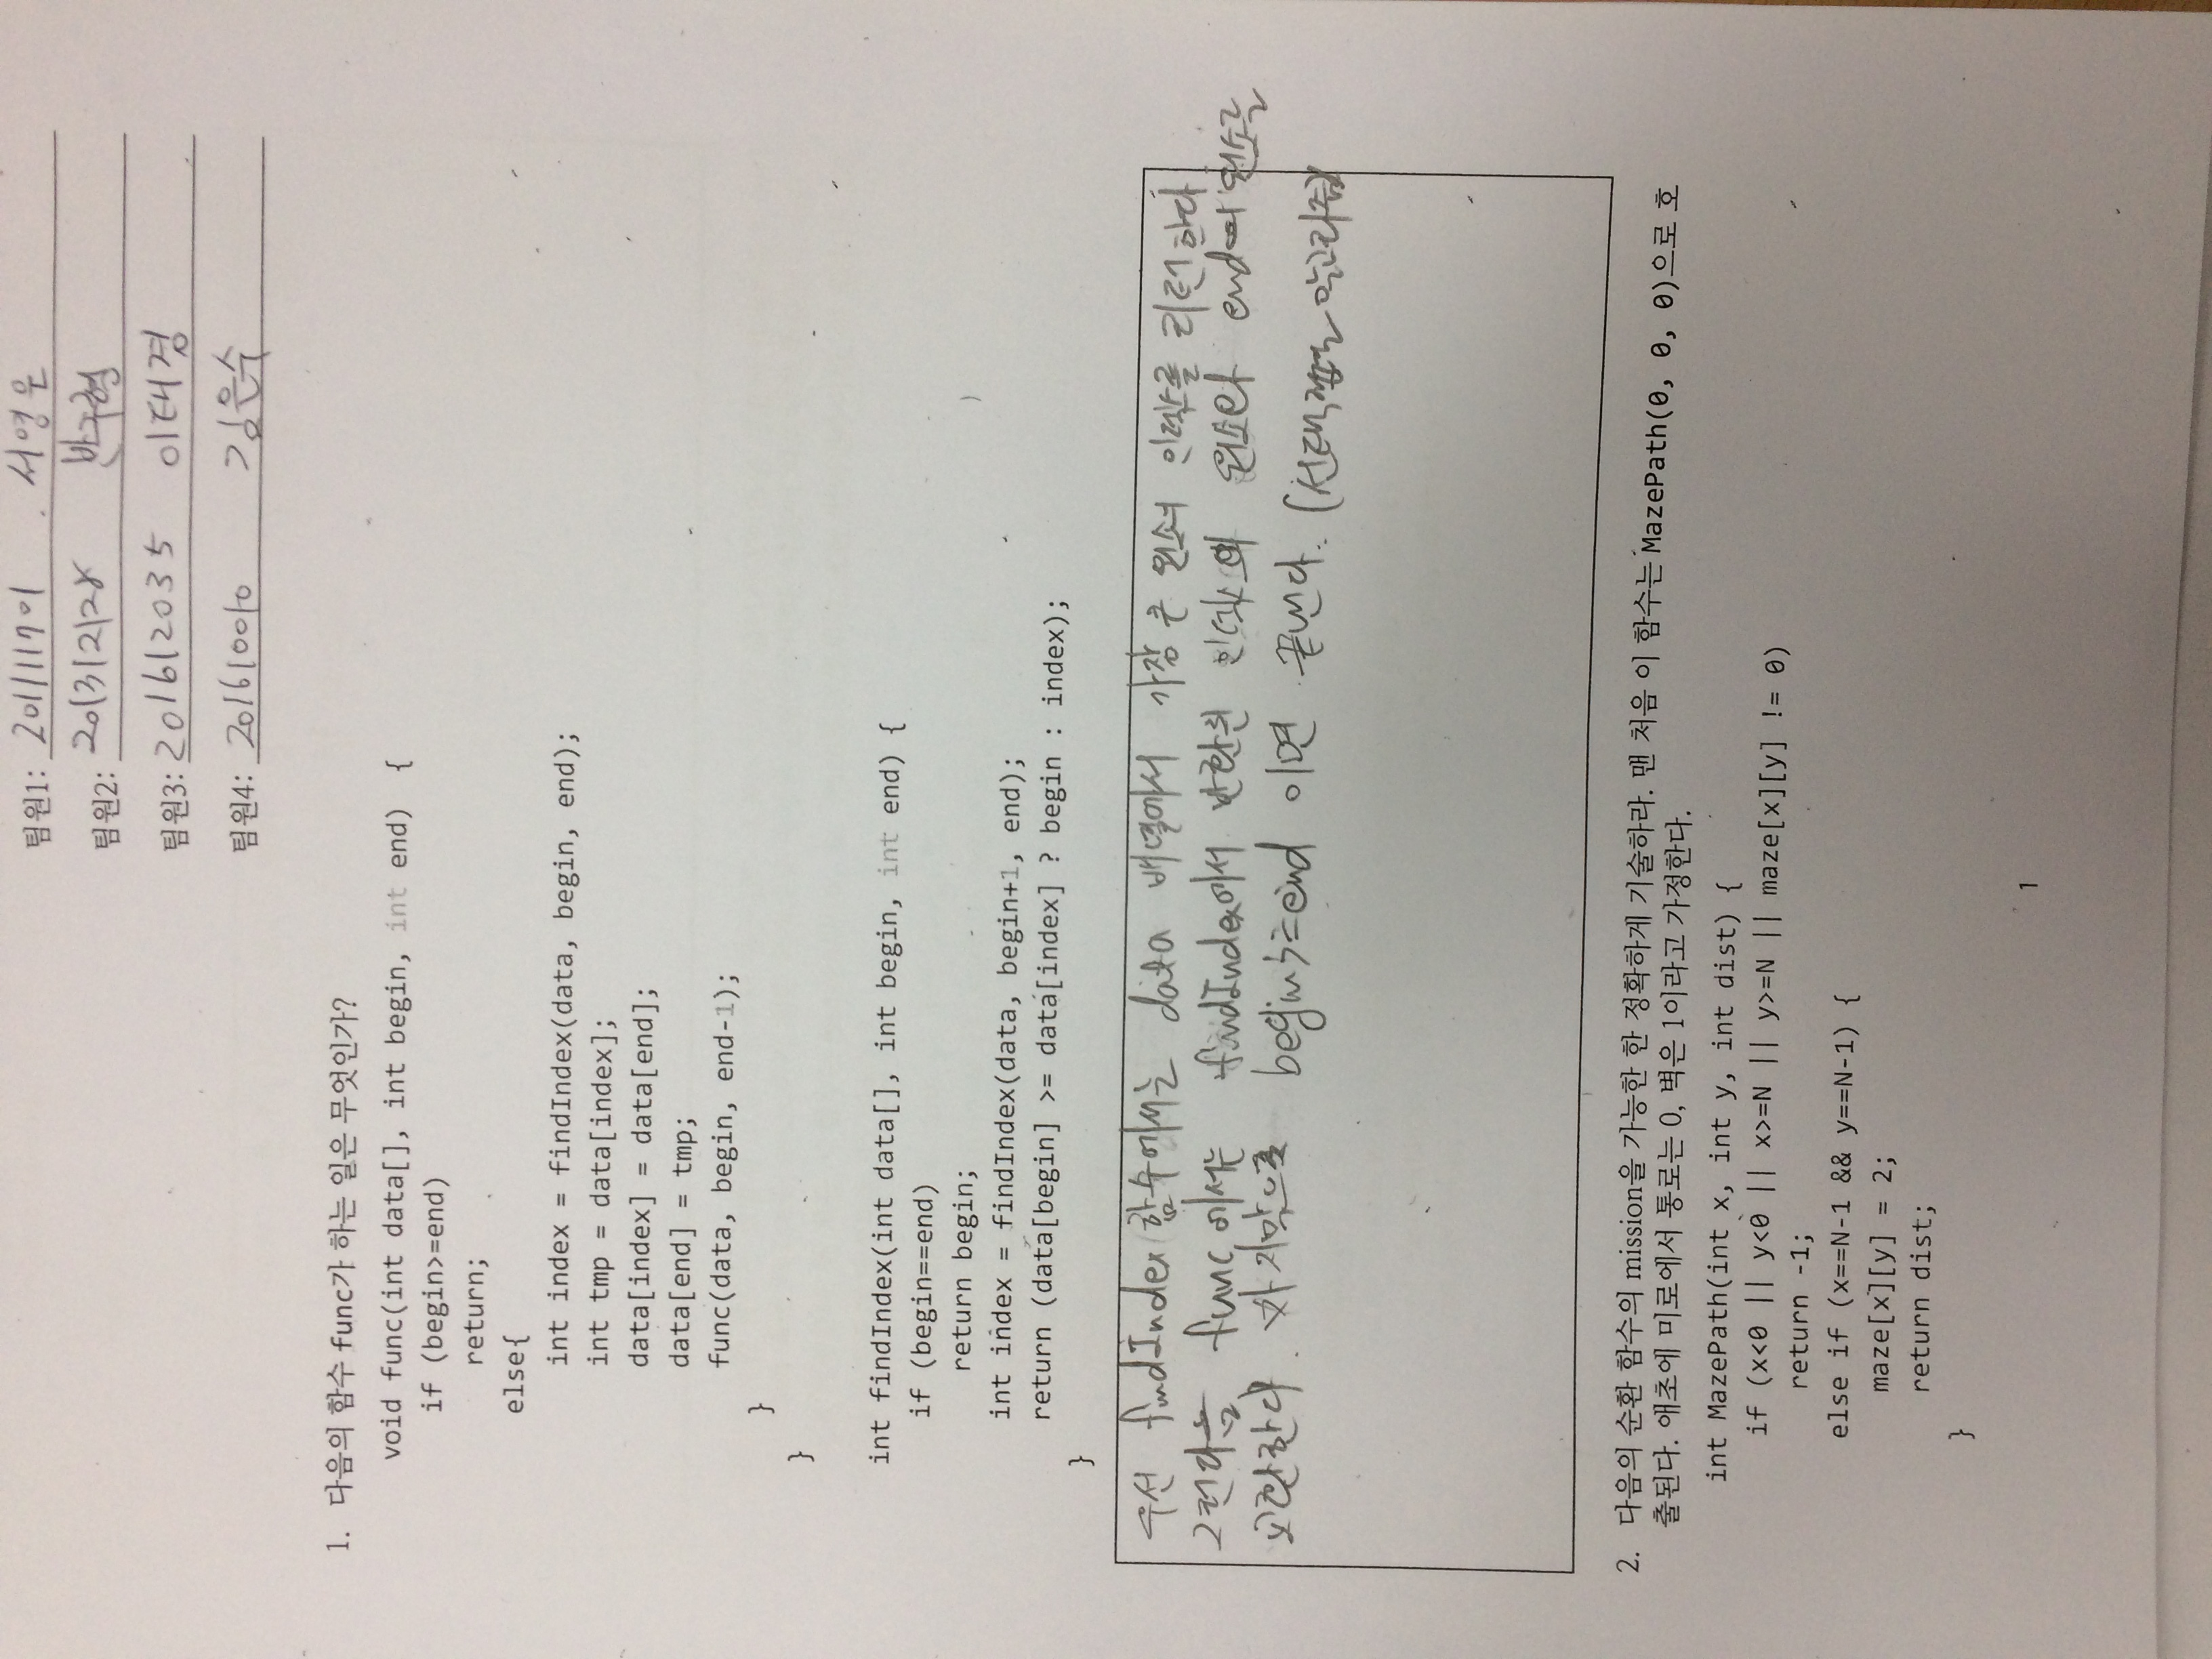 팀원1: 201111701 서영은
팀원2: 201312128 반구혁
팀원3: 201612035 이태경
팀원4: 201610010 김은수
1. 다음의 함수 func가 하는 일은 무엇인가?
void func(int data[], int begin, int end) {
if (begin>=end)
return;
else{
int index = findIndex(data, begin, end);
int tmp = data[index];
data[index] = data[end];
data[end] = tmp;
func(data, begin, end-1);
}
}
int findIndex(int data[], int begin, int end) {
if (begin==end)
return begin;
int index = findIndex(data, begin+1, end);
return (data[begin] >= data[index] ? begin : index);
}
우선 findIndex 함수에서는 data 배열에서 가장 큰 원소의 인덱스를 리턴한다
그런다음 func에서는 findIndex에서 반환된 인덱스의 원소와 end의 원소를
교환한다. 마지막으로 begin>=end 이면 끝낸다. (선택정렬 알고리즘)
2. 다음의 순환 함수의 mission을 가능한 한 정확하게 기술하라. 맨 처음 이 함수는 MazePath(0, 0, 0)으로 호
출된다. 애초에 미로에서 통로는 0, 벽은 1이라고 가정한다.
int MazePath(int x, int y, int dist) {
if (x<0 || y<0 || x>=N || y>=N || maze[x][y] != 0)
return -1;
else if (x==N-1 && y==N-1) {
maze[x][y] = 2;
return dist;
}
1